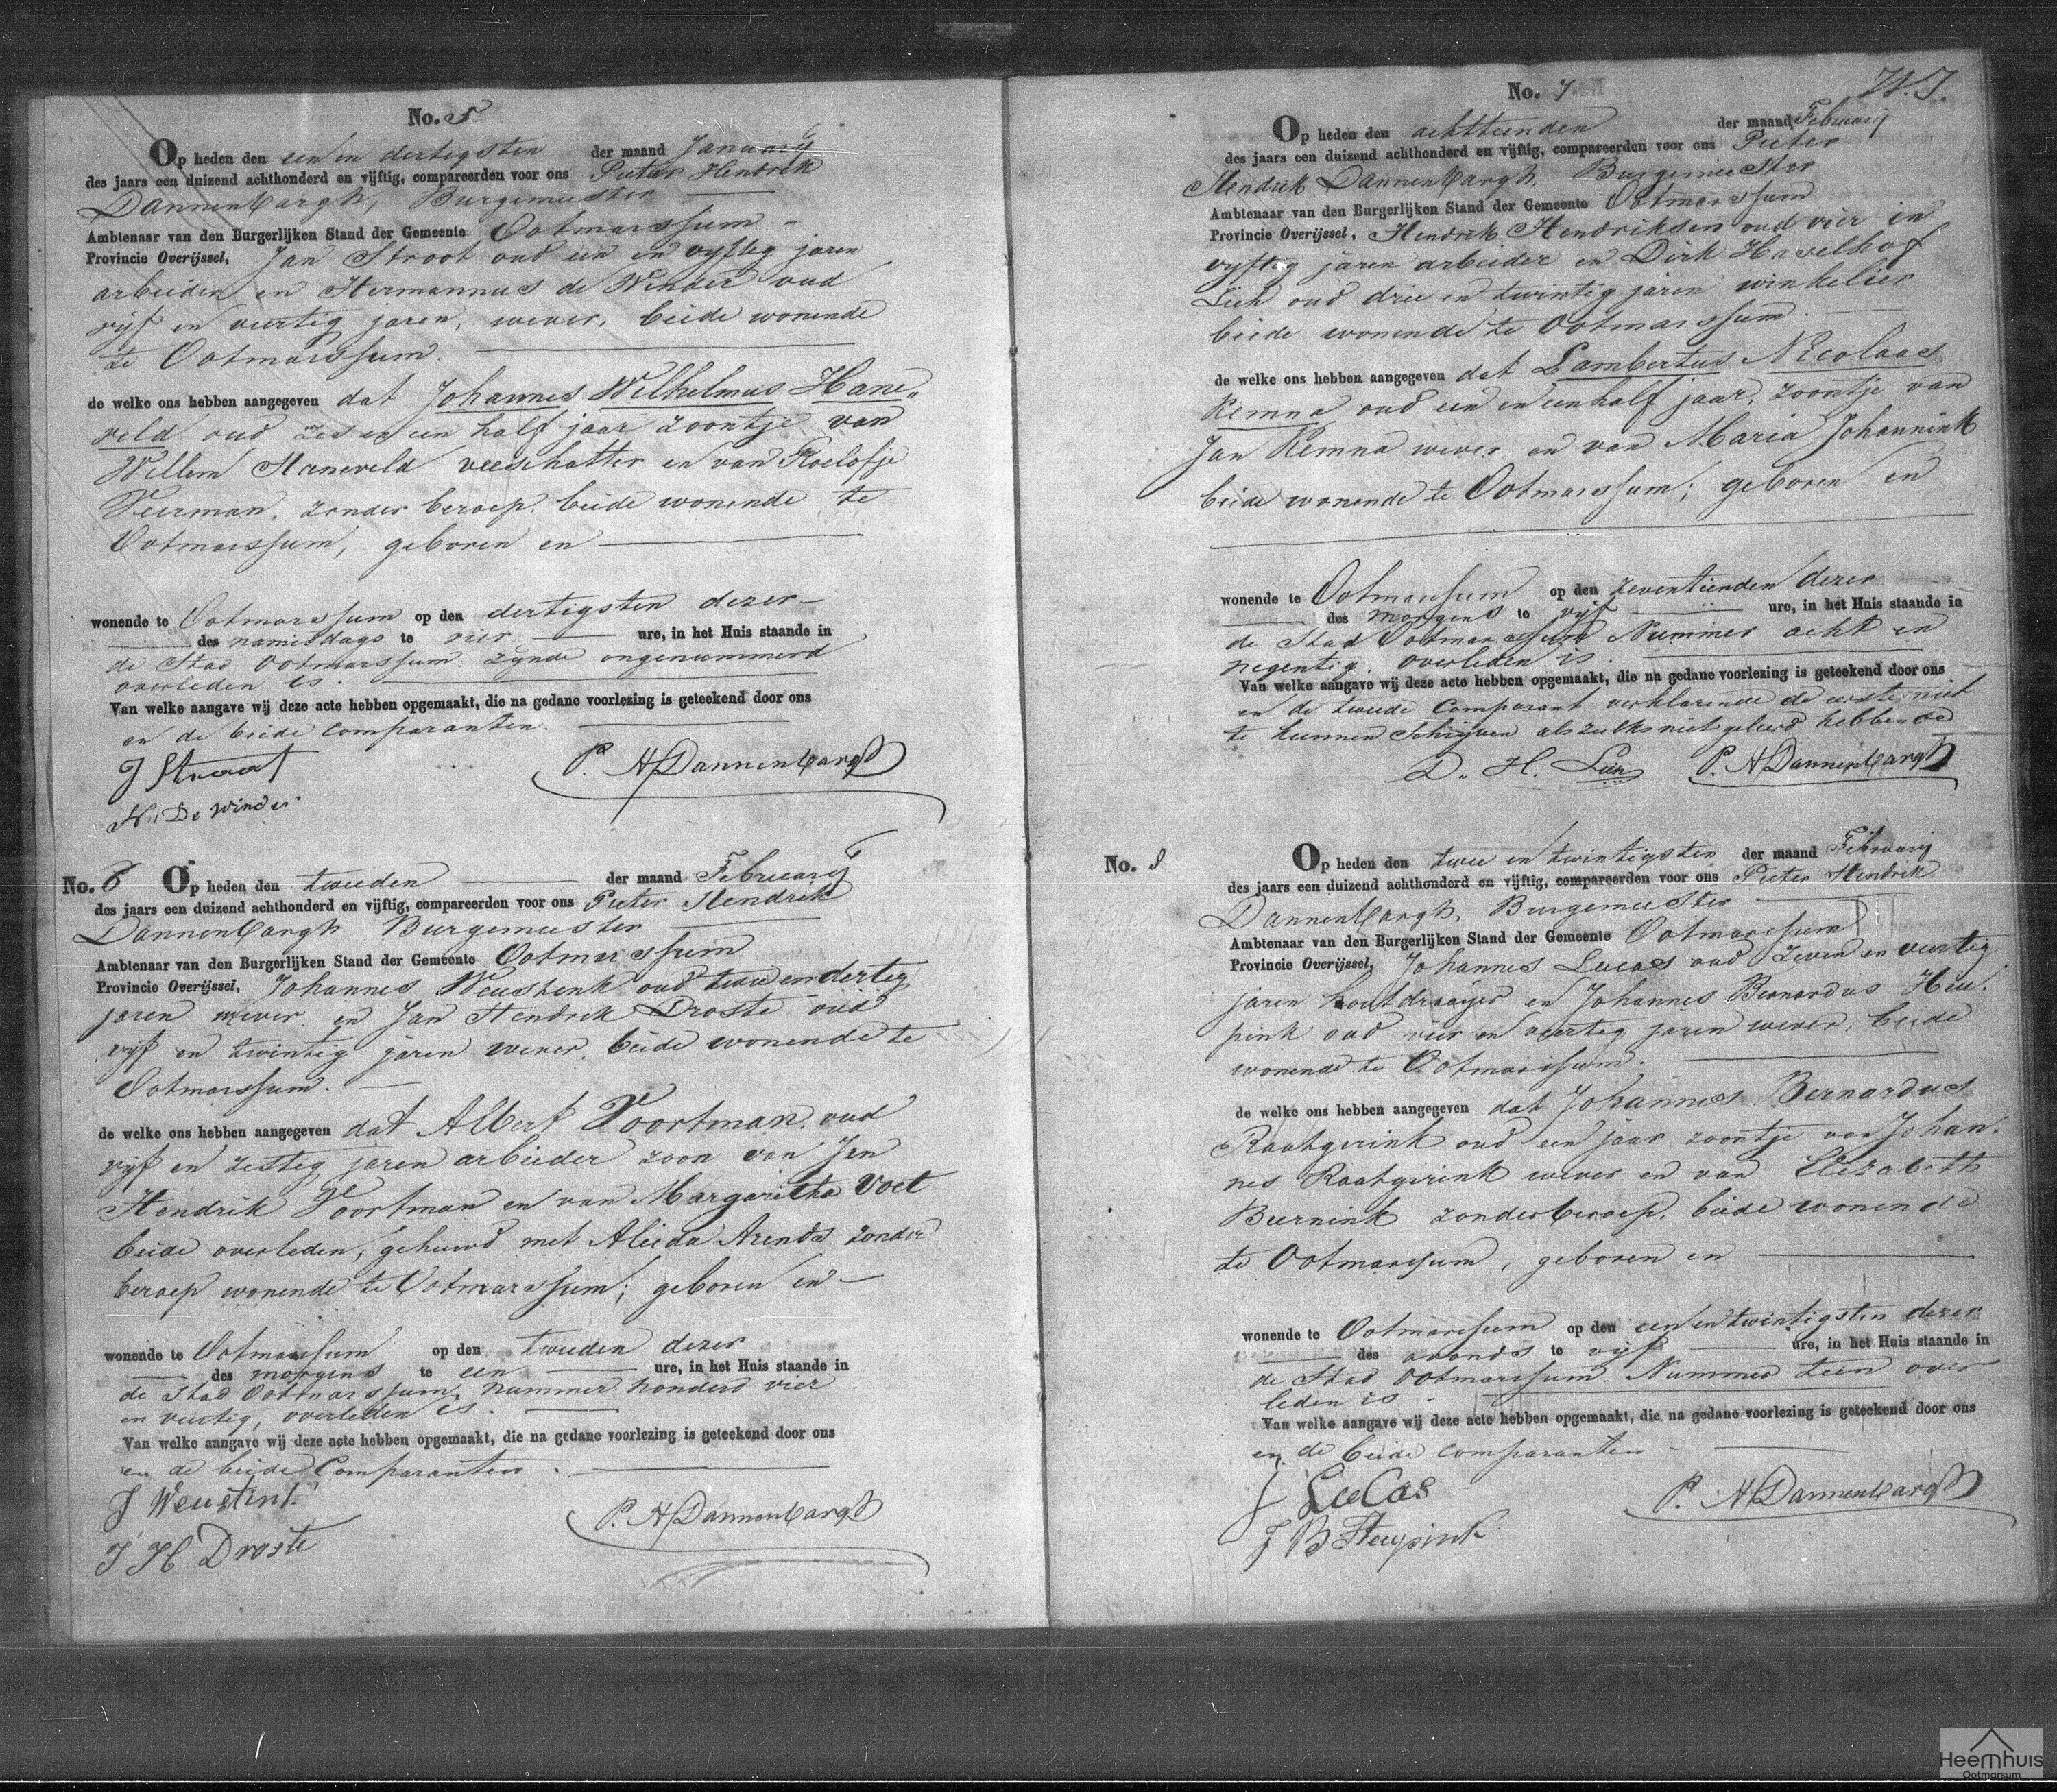 No. 5
Op heden den een en dertigsten der maand Januarij
des jaars een duizend achthonderd en vijftig, compareerden voor ons Pieter Hendrik
Dannenbargh, Burgemeester
Ambtenaar van den Burgerlijken Stand der Gemeente Ootmarssum
Provincie Overijssel, Jan Stroot oud een en vyftig jaren
arbeider en Hermannus de Winder oud
vijf en veertig jaren, wever, beide wonende
te Ootmarssum.
de welke ons hebben aangegeven dat Johannes Wilhelmus Hane„
veld oud zes en een half jaar zoontje van
Willem Haneveld veeschatter en van Roelofje
Veerman, zonder beroep, beide wonende te
Ootmarssum, geboren en
wonende te Ootmarssum op den dertigsten dezer
des namiddags te vier ure, in het Huis staande in
de Stad Ootmarssum, zynde ongenummerd
overleden is.
Van welke aangave wij deze acte hebben opgemaakt, die na gedane voorlezing is geteekend door ons
en de beide comparanten.
J Stroot P. H Dannenbargh
H. De Winder
No. 6 Op heden den tweeden der maand Februarij
des jaars een duizend achthonderd en vijftig, compareerden voor ons Pieter Hendrik
Dannenbargh Burgemeester
Ambtenaar van den Burgerlijken Stand der Gemeente Ootmarssum
Provincie Overijssel, Johannes Weustink oud twee en dertig
jaren wever en Jan Hendrik Droste oud
vijf en twintig jaren wever, beide wonende te
Ootmarssum.
de welke ons hebben aangegeven dat Albert Voortman, oud
vijf en zestig jaren arbeider zoon van Jan
Hendrik Voortman en van Margaretha Voet
beide overleden, gehuwd met Aleida Arends zonder
beroep wonende te Ootmarssum; geboren en
wonende te Ootmarssum op den tweeden dezer
des morgens te een ure, in het Huis staande in
de Stad Ootmarssum, nummer honderd vier
en veertig, overleden is.
Van welke aangave wij deze acte hebben opgemaakt, die na gedane voorlezing is geteekend door ons
en de beide Comparanten.
J Weustink P. H Dannenbargh
J H Droste
No. 7
Op heden den achttienden der maand Februarij
des jaars een duizend achthonderd en vijftig, compareerden voor ons Pieter
Hendrik Dannenbargh, Burgemeester
Ambtenaar van den Burgerlijken Stand der Gemeente Ootmarssum
Provincie Overijssel, Hendrik Hendriksen oud vier en
vyftig jaren arbeider en Dirk Havelhof
Lieh oud drie en twintig jaren winkelier
beide wonende te Ootmarssum.
de welke ons hebben aangegeven dat Lambertus Nicolaas
Remna oud een en een half jaar, zoontje van
Jan Remna wever en van Maria Johannink
beide wonende te Ootmarssum; geboren en
wonende te Ootmarssum op den zeventienden dezer
des morgens te vijf ure, in het Huis staande in
de Stad Ootmarssum Nummer acht en
negentig, overleden is.
Van welke aangave wij deze acte hebben opgemaakt, die na gedane voorlezing is geteekend door ons
en de tweede Comparant verklarende de eerste niet
te kunnen Schrijven als zulks niet geleerd hebbende
D. H. Lieh P. H Dannenbargh
No. 8 Op heden den twee en twintigsten der maand Februarij
des jaars een duizend achthonderd en vijftig, compareerden voor ons Pieter Hendrik
Dannenbargh, Burgemeester
Ambtenaar van den Burgerlijken Stand der Gemeente Ootmarssum
Provincie Overijssel, Johannes Lucas oud zeven en veertig
jaren houtdraaijer en Johannes Bernardus Heu„
pink oud vier en veertig jaren wever, beide
wonende te Ootmarssum.
de welke ons hebben aangegeven dat Johannes Bernardus
Raatgerink oud een jaar zoontje van Johan„
nes Raatgerink wever en van Elizabeth
Beernink zonder beroep, beide wonende
te Ootmarssum, geboren en
wonende te Ootmarssum op den een en twintigsten dezer
des avonds te vijf ure, in het Huis staande in
de Stad Ootmarssum Nummer tien over
leden is.
Van welke aangave wij deze acte hebben opgemaakt, die na gedane voorlezing is geteekend door ons
en de beide comparanten
J Lucas P. H Dannenbargh
J B Heupink
Heemhuis
Ootmarsum